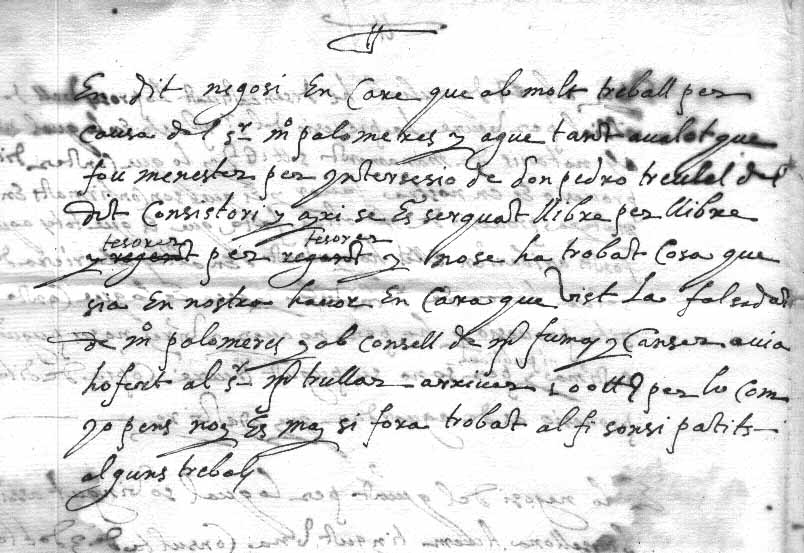 En dit negosi En Care que ab molt treball per
causa del sr mº palomeres y ague tant aualot que
fou menester per yntersesio de don pedro treulel del
dit Consistori y axi se Es serquat llibre per llibre
tesorer tesorer
y regent per regent y nose ha trobat Cosa que
sia En nostra hauor En Cara que vist La falsedat
de mº palomeres y ab consell de mº fumas y Canser auia
hofert al sr mº trullar arriuer 100 ll per lo Com
yo pens nos Es may si fora trobat al fi sonsi patits
alguns treballs